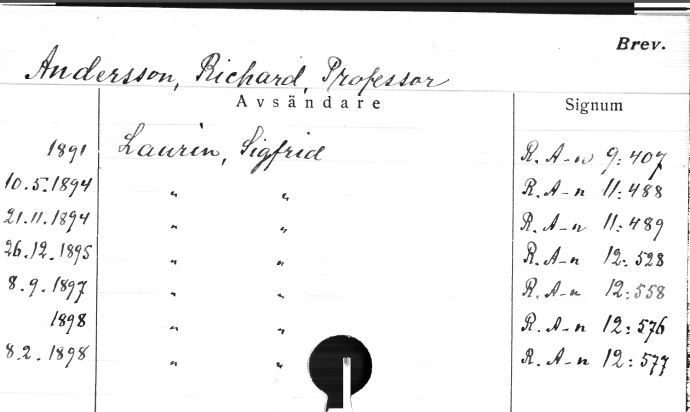 Brev.
Andersson, Richard, Professor
Avsändare Signum
1891 Laurin, Sigfrid R. A-n 9:407
10.5.1894 " " R. A-n 11:488
21.11.1894 " " R. A-n 11:489
26.12.1895 " " R. A-n 12:528
8.9.1897 " " R. A-n 12:558
1898 " " R. A-n 12:576
8.2.1898 " " R. A-n 12:577